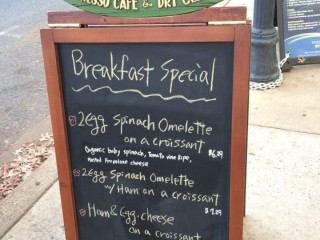 ESSO CAFE & DRY CL
Breakfast Special
2Egg Spinach Omelette
on a croissant
Organic baby spinach, Tomato vine Ripe, $6.99
melted Provolone cheese
2Egg Spinach Omelette
w/ Ham on a croissant
Ham & Egg. cheese $7.29
on a croissant